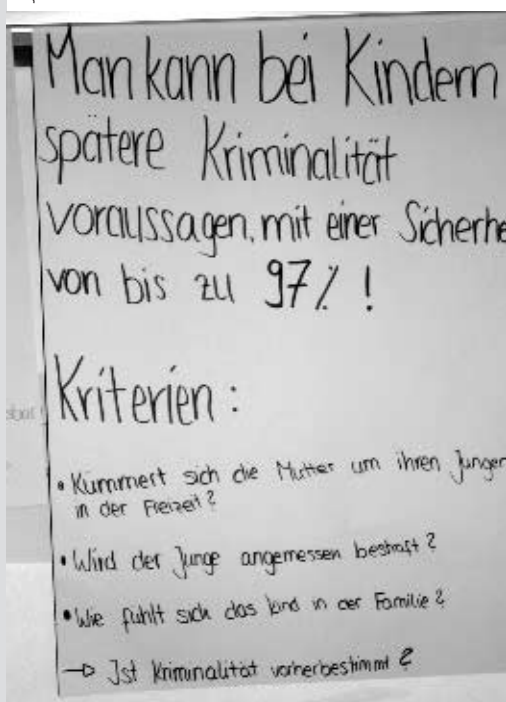 Man kann bei Kindern
spätere Kriminalität
voraussagen, mit einer Sicherhe
von bis zu 97% !
Kriterien :
• Kümmert sich die Mutter um ihren Junger
in der Freizeit ?
• Wird der Junge angemessen bestraft ?
• Wie fühlt sich das Kind in der Familie ?
→ Ist Kriminalität vorherbestimmt ?